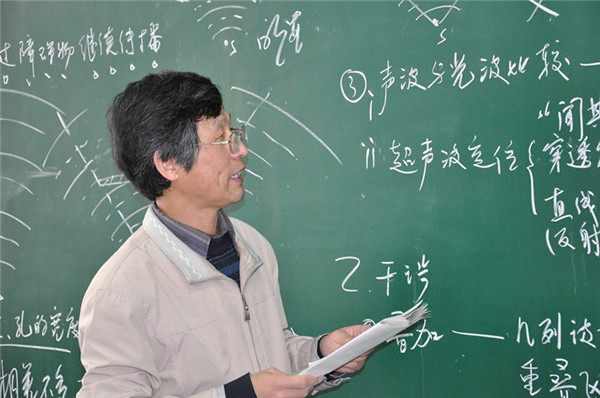 过障碍物继续传播
S
S
③ i 声波与光波比较 —
“闻其
ii 超声波定位 { 穿透
直线
(反射
2. 干涉
叠加 — 几列波
重叠区
、孔的宽度
相差不